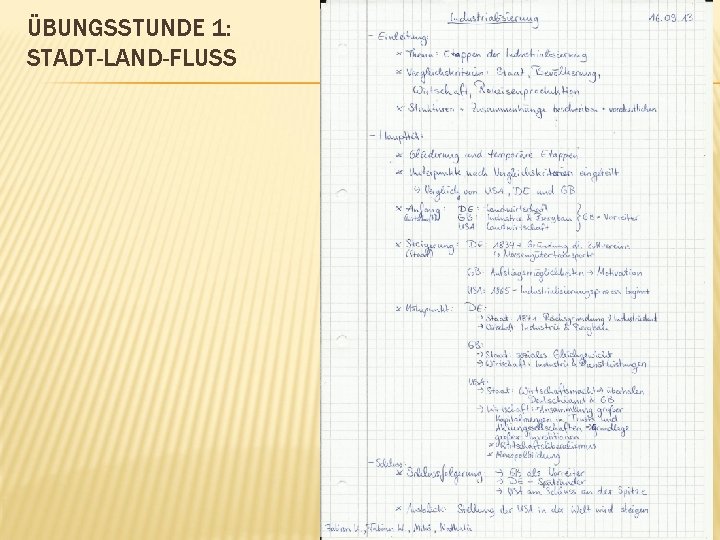 ÜBUNGSSTUNDE 1:
STADT-LAND-FLUSS
Industrialisierung 16.09.13
- Einleitung:
× Thema: Etappen der Industrialisierung
× Vergleichskriterien: Staat, Bevölkerung,
Wirtschaft, Roheisenproduktion
× Strukturen + Zusammenhänge beschreiben + verdeutlichen
- Hauptteil:
× Gliederung und temporäre Etappen
× Unterpunkte nach Vergleichskriterien eingeteilt
↳ Vergleich von USA, DE und GB
× Anfang: DE: Landwirtschaft
GB: Industrie & Bergbau } GB = Vorreiter
USA Landwirtschaft
× Steigerung: DE 1834 Gründung d. Zollvereins
(Staat) ↳ Massengütertransporte
GB: Aufstiegsmöglichkeiten → Motivation
USA: 1865 - Industrialisierungsprozess beginnt
× Höhepunkt: DE:
→ Staat 1871 Reichsgründung & Industrieland
→ Wirtschaft Industrie & Bergbau
GB:
→ Staat soziales Gleichgewicht
→ Wirtschaft: Industrie & Dienstleistungen
USA:
→ Staat: Wirtschaftsmacht → überholen
Deutschland & GB
→ Wirtschaft: Ansammlung großer
Kapitalmengen in Trusts und
Aktiengesellschaften → Grundlage
großer Investitionen
× Wirtschaftsliberalismus
× Monopolbildung
- Schluss:
× Schlussfolgerung → GB als Vorreiter
→ DE - Spätzünder
→ USA am Schluss an der Spitze
× Ausblick: Stellung der USA in der Welt wird steigen
Fabian W., Nathalie